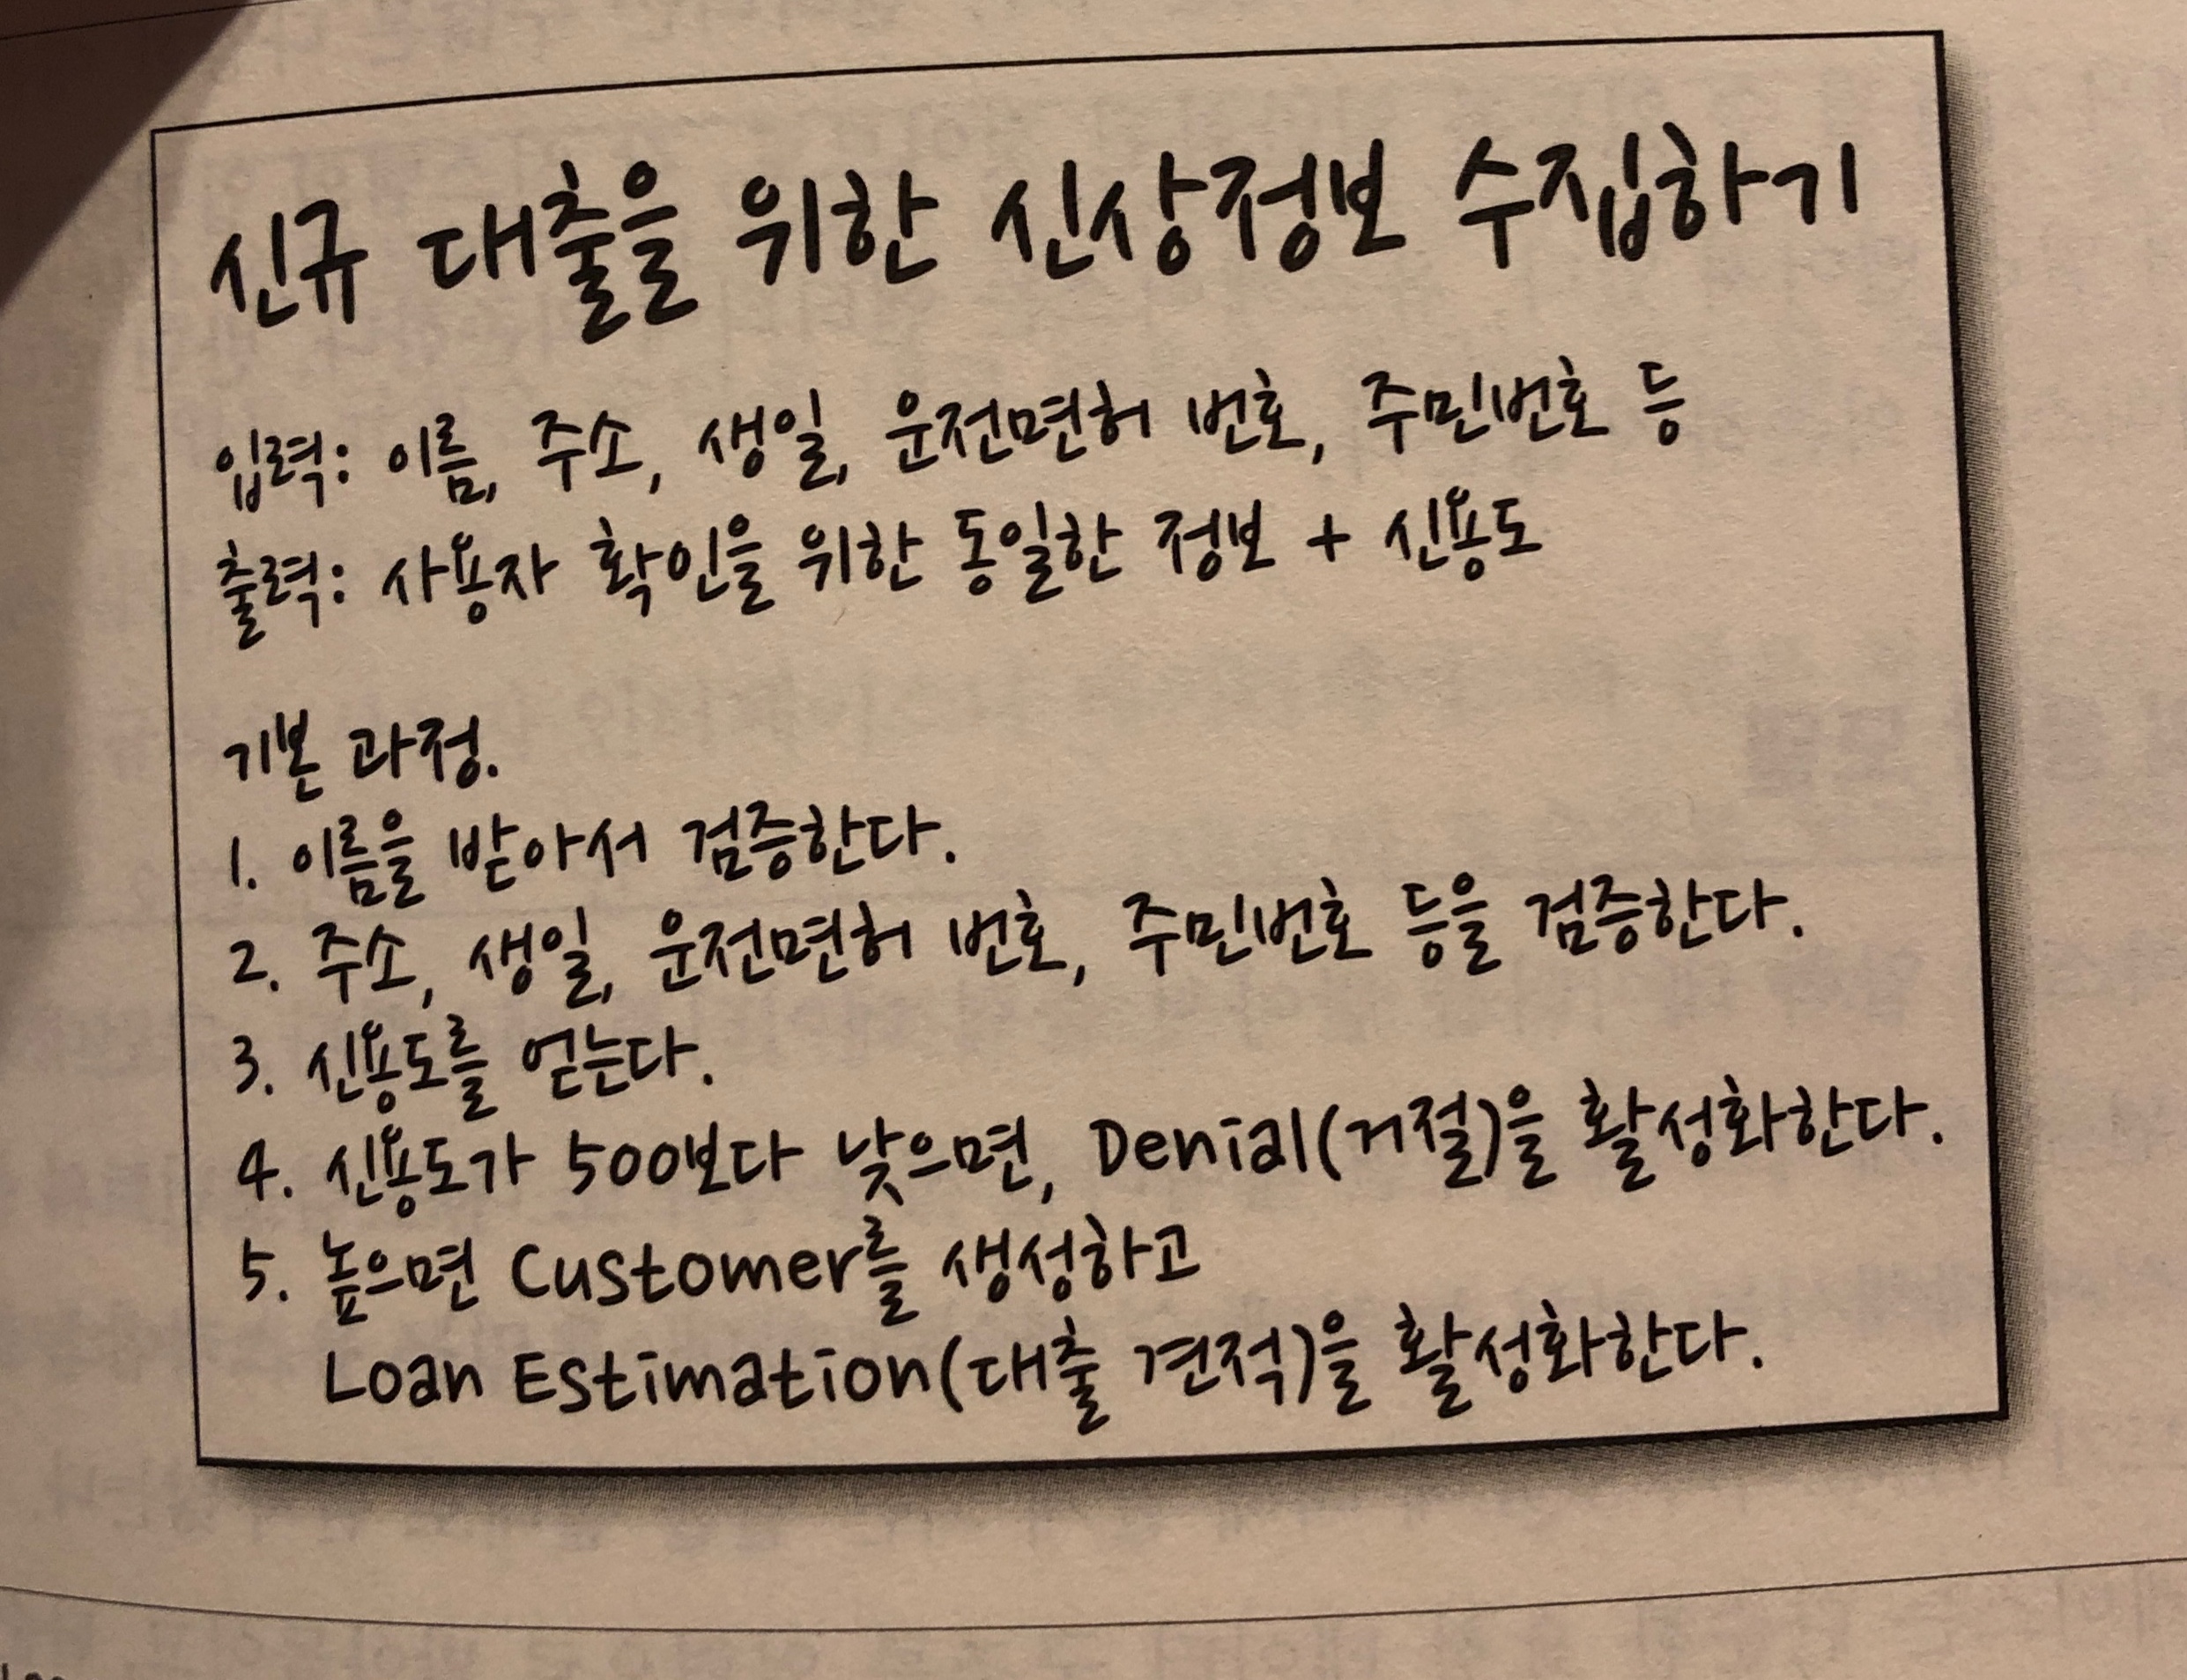 신규 대출을 위한 신상정보 수집하기
입력: 이름, 주소, 생일, 운전면허 번호, 주민번호 등
출력: 사용자 확인을 위한 동일한 정보 + 신용도
기본 과정.
1. 이름을 받아서 검증한다.
2. 주소, 생일, 운전면허 번호, 주민번호 등을 검증한다.
3. 신용도를 얻는다.
4. 신용도가 500보다 낮으면, Denial(거절)을 활성화한다.
5. 높으면 Customer를 생성하고
Loan Estimation(대출 견적)을 활성화한다.